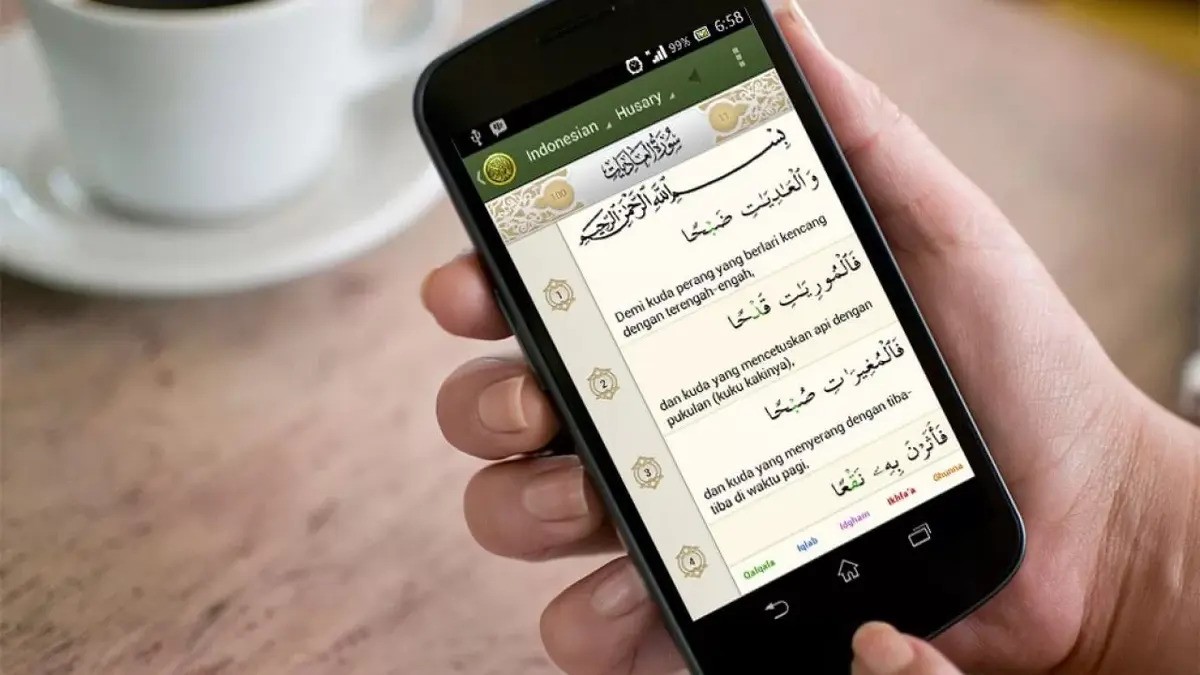 99% 6:58
Indonesian Husary
100 سُورَةُ العَادِيَاتِ 11
بِسْمِ ٱللَّهِ ٱلرَّحْمَٰنِ ٱلرَّحِيمِ
وَٱلْعَٰدِيَٰتِ ضَبْحًا
1
Demi kuda perang yang berlari kencang
dengan terengah-engah,
فَٱلْمُورِيَٰتِ قَدْحًا
2
dan kuda yang mencetuskan api dengan
pukulan (kuku kakinya),
فَٱلْمُغِيرَٰتِ صُبْحًا
3
dan kuda yang menyerang dengan tiba-
tiba di waktu pagi,
فَأَثَرْنَ بِهِۦ نَقْعًا
4
Qalqala Iqlab Idgham Ikhfa'a Ghunna